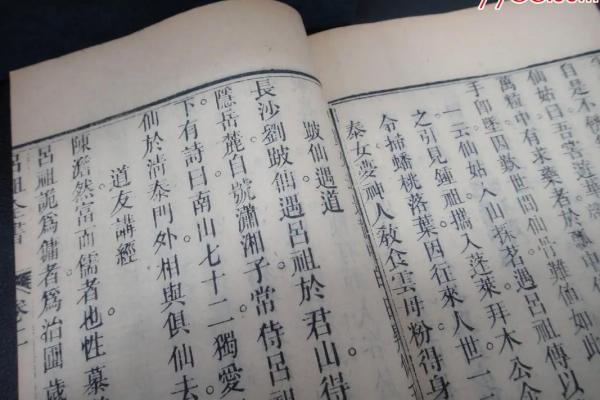 自是不饑
仙姑曰吾
萬粒中有求藥者於瓢中
手卽堅囚數世間仙骨難值如此
一云仙姑入山採茗遇呂祖傳以
之引見鍾祖攜入蓬萊拜木公
令掃蟠桃落葉因往來人世一
秦女夢神人教食雲母粉得身
跛仙遇道
長沙劉跛仙遇呂祖於君山
隱岳麓自號瀟湘子常侍呂
下有詩曰南山七十二獨愛
仙於清泰門外相與俱仙去
道友講經
陳澹然富而儒者也性慕
呂祖詭爲傭者爲治圃歲
呂祖全書 卷二